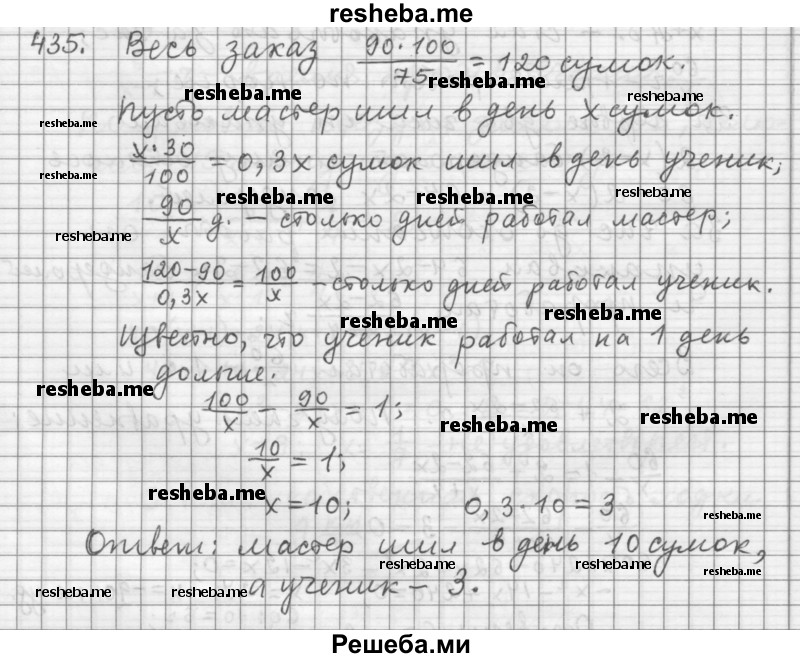 resheba.me
435. Весь заказ 90·100/75 = 120 сумок.
resheba.me
resheba.me
resheba.me
Пусть мастер шил в день x сумок.
resheba.me
x·30/100 = 0,3x сумок шил в день ученик;
resheba.me
resheba.me
resheba.me
resheba.me
90/x д. – столько дней работал мастер;
resheba.me
120-90/0,3x = 100/x – столько дней работал ученик.
resheba.me
resheba.me
Известно, что ученик работал на 1 день
дольше.
resheba.me
100/x – 90/x = 1;
resheba.me
resheba.me
10/x = 1;
resheba.me
x=10; 0,3·10=3
resheba.me
Ответ: мастер шил в день 10 сумок,
resheba.me
resheba.me
resheba.me
а ученик – 3.
resheba.me
resheba.me
resheba.me
Решеба.ми